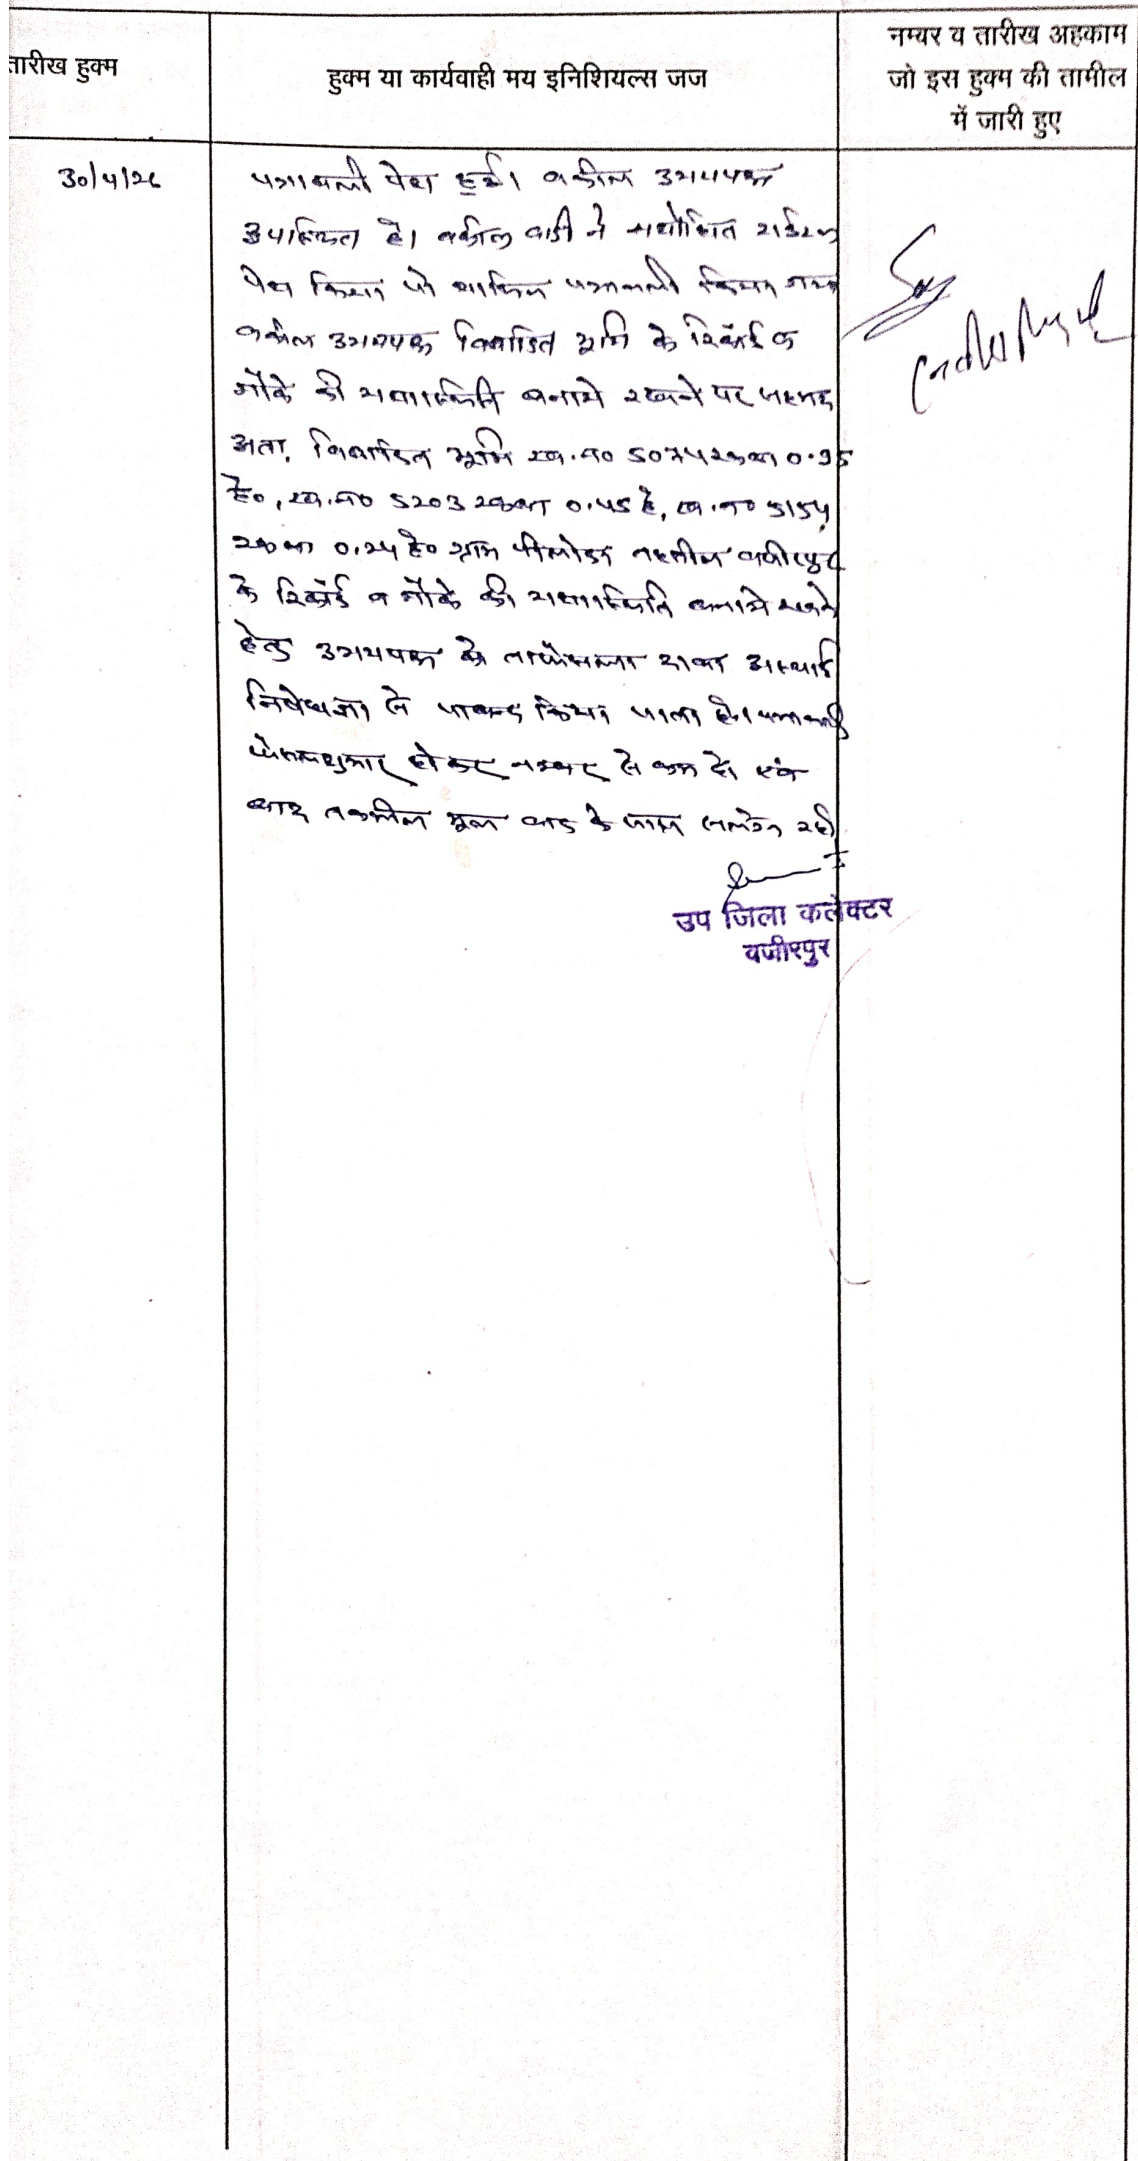 तारीख हुक्म
हुक्म या कार्यवाही मय इनिशियल्स जज
नम्बर व तारीख अहकाम
जो इस हुक्म की तामील
में जारी हुए
30/4/26
पत्रावली पेश हुई। वकील उभयपक्ष
उपस्थित है। वकील वादी ने संशोधित शीर्षक
पेश किया जो शामिल पत्रावली किया गया
वकील उभयपक्ष विवादित भूमि के रिकॉर्ड व
मौके की यथास्थिति बनाये रखने पर सहमत
अतः विवादित भूमि ख.न० 5074 रकबा 0.95
है०, ख.न० 5203 रकबा 0.45 है, ख.न० 5154
रकबा 0.24 है० ग्राम पीलोदा तहसील वजीरपुर
के रिकॉर्ड व मौके की यथास्थिति बनाये रखने
हेतु उभयपक्ष को ताफैसला दावा अस्थाई
निषेधाज्ञा से पाबन्द किया जाता है। पत्रावली
फैसलशुमार होकर नम्बर से कम हो एवं
बाद तकमील मूल वाद के साथ संलग्न रहे
उप जिला कलेक्टर
वजीरपुर